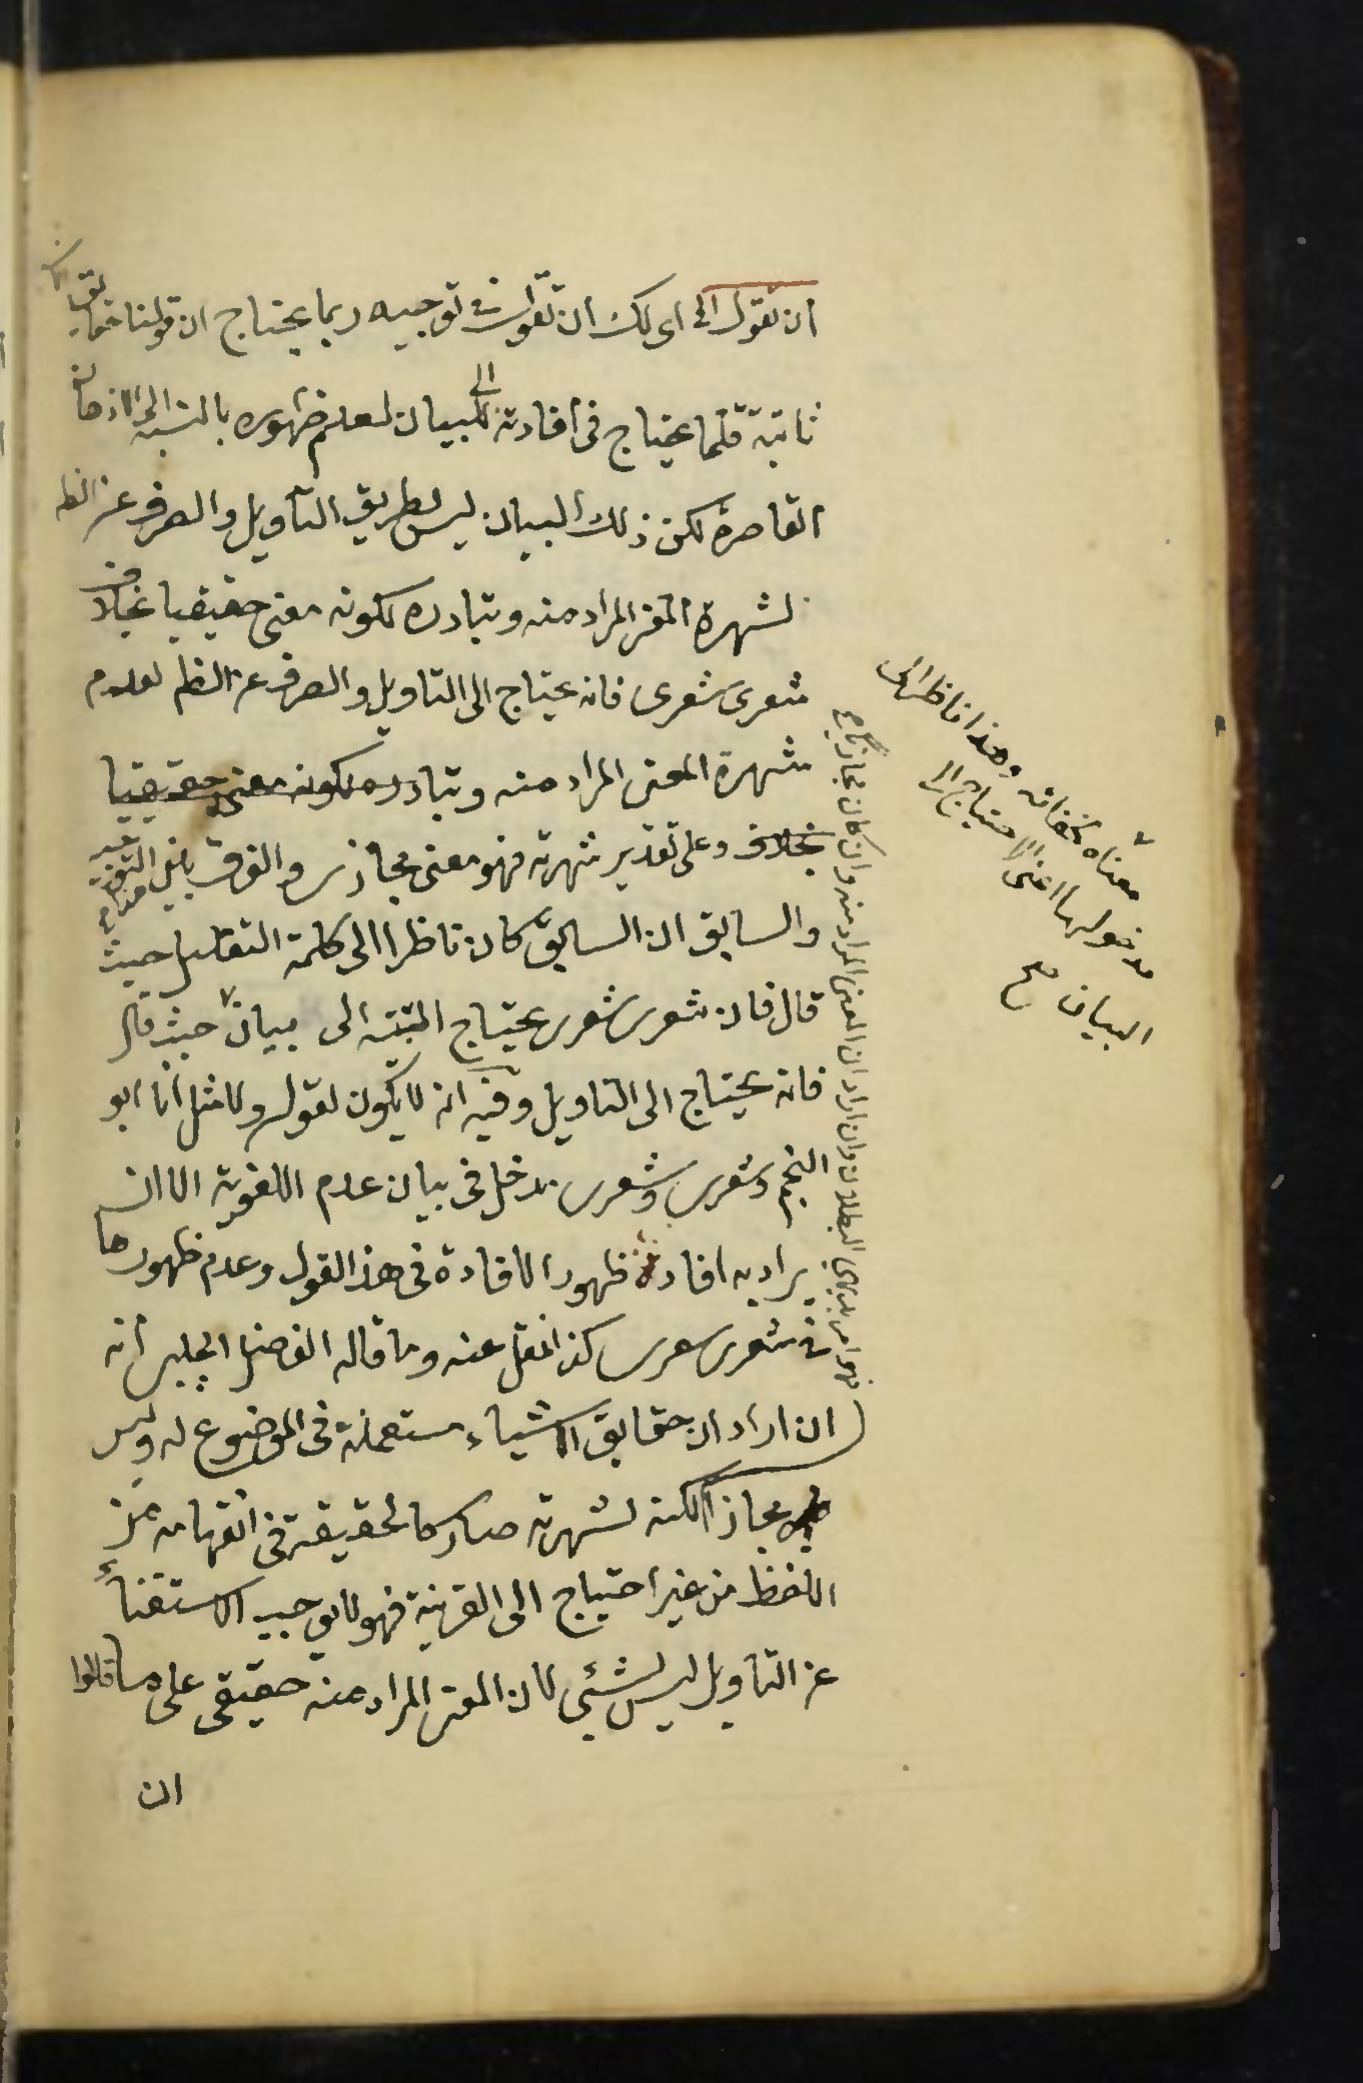 ان تقول الخ اى لك ان تقول فى توجيه ربما يحتاج ان قولنا حقايق الا
ثابتة قلما يحتاج فى افادته الى البيان لعدم ظهوره بالنسبة الى الاذهان
القاصرة لكن ذلك البيان ليس بطريق التأويل والصرف عن الظ
لشهرة المعنى المراد منه وتبادره لكونه معنى حقيقيا بخلاف
شعرى شعرى فانه يحتاج الى التاويل والصرف عن الظ لعدم
شهرة المعنى المراد منه وتبادره لكونه معنى حقيقيا
بخلاف وعلى تقدير شهرته فهو معنى مجازى والفرق بين التوجيه
والسابق ان السابق كان ناظرا الى كلمة التقليل حيث
قال فان شعرى شعرى يحتاج البتة الى بيان حيث قال
فانه يحتاج الى التاويل وفيه انه لا يكون لقوله ولا مثل انا ابو
النجم وشعرى شعرى مدخل فى بيان عدم اللغوية الا ان
يراد به افادة ظهور الافادة فى هذا القول وعدم ظهورها
فى شعرى شعرى كذا نقل عنه وما قاله الفاضل الجلبى انه
ان اراد ان حقايق الاشياء مستعملة فى الموضوع له وليس
مجازا لكنه لشهرته صار كالحقيقة فى انفهامه من
اللفظ من غير احتياج الى القرينة فهو لا يوجب الاستغناء
عن التاويل ليس بشئ لان المعنى المراد منه حقيقى على ما قالوا
ان
فهو امر بديهى البطلان وان اراد ان المعنى المراد منه وان كان مجازيا
معناه لخفائه وهذا ناظر الى
مدخولها اعنى الاحتياج الى
البيان صح